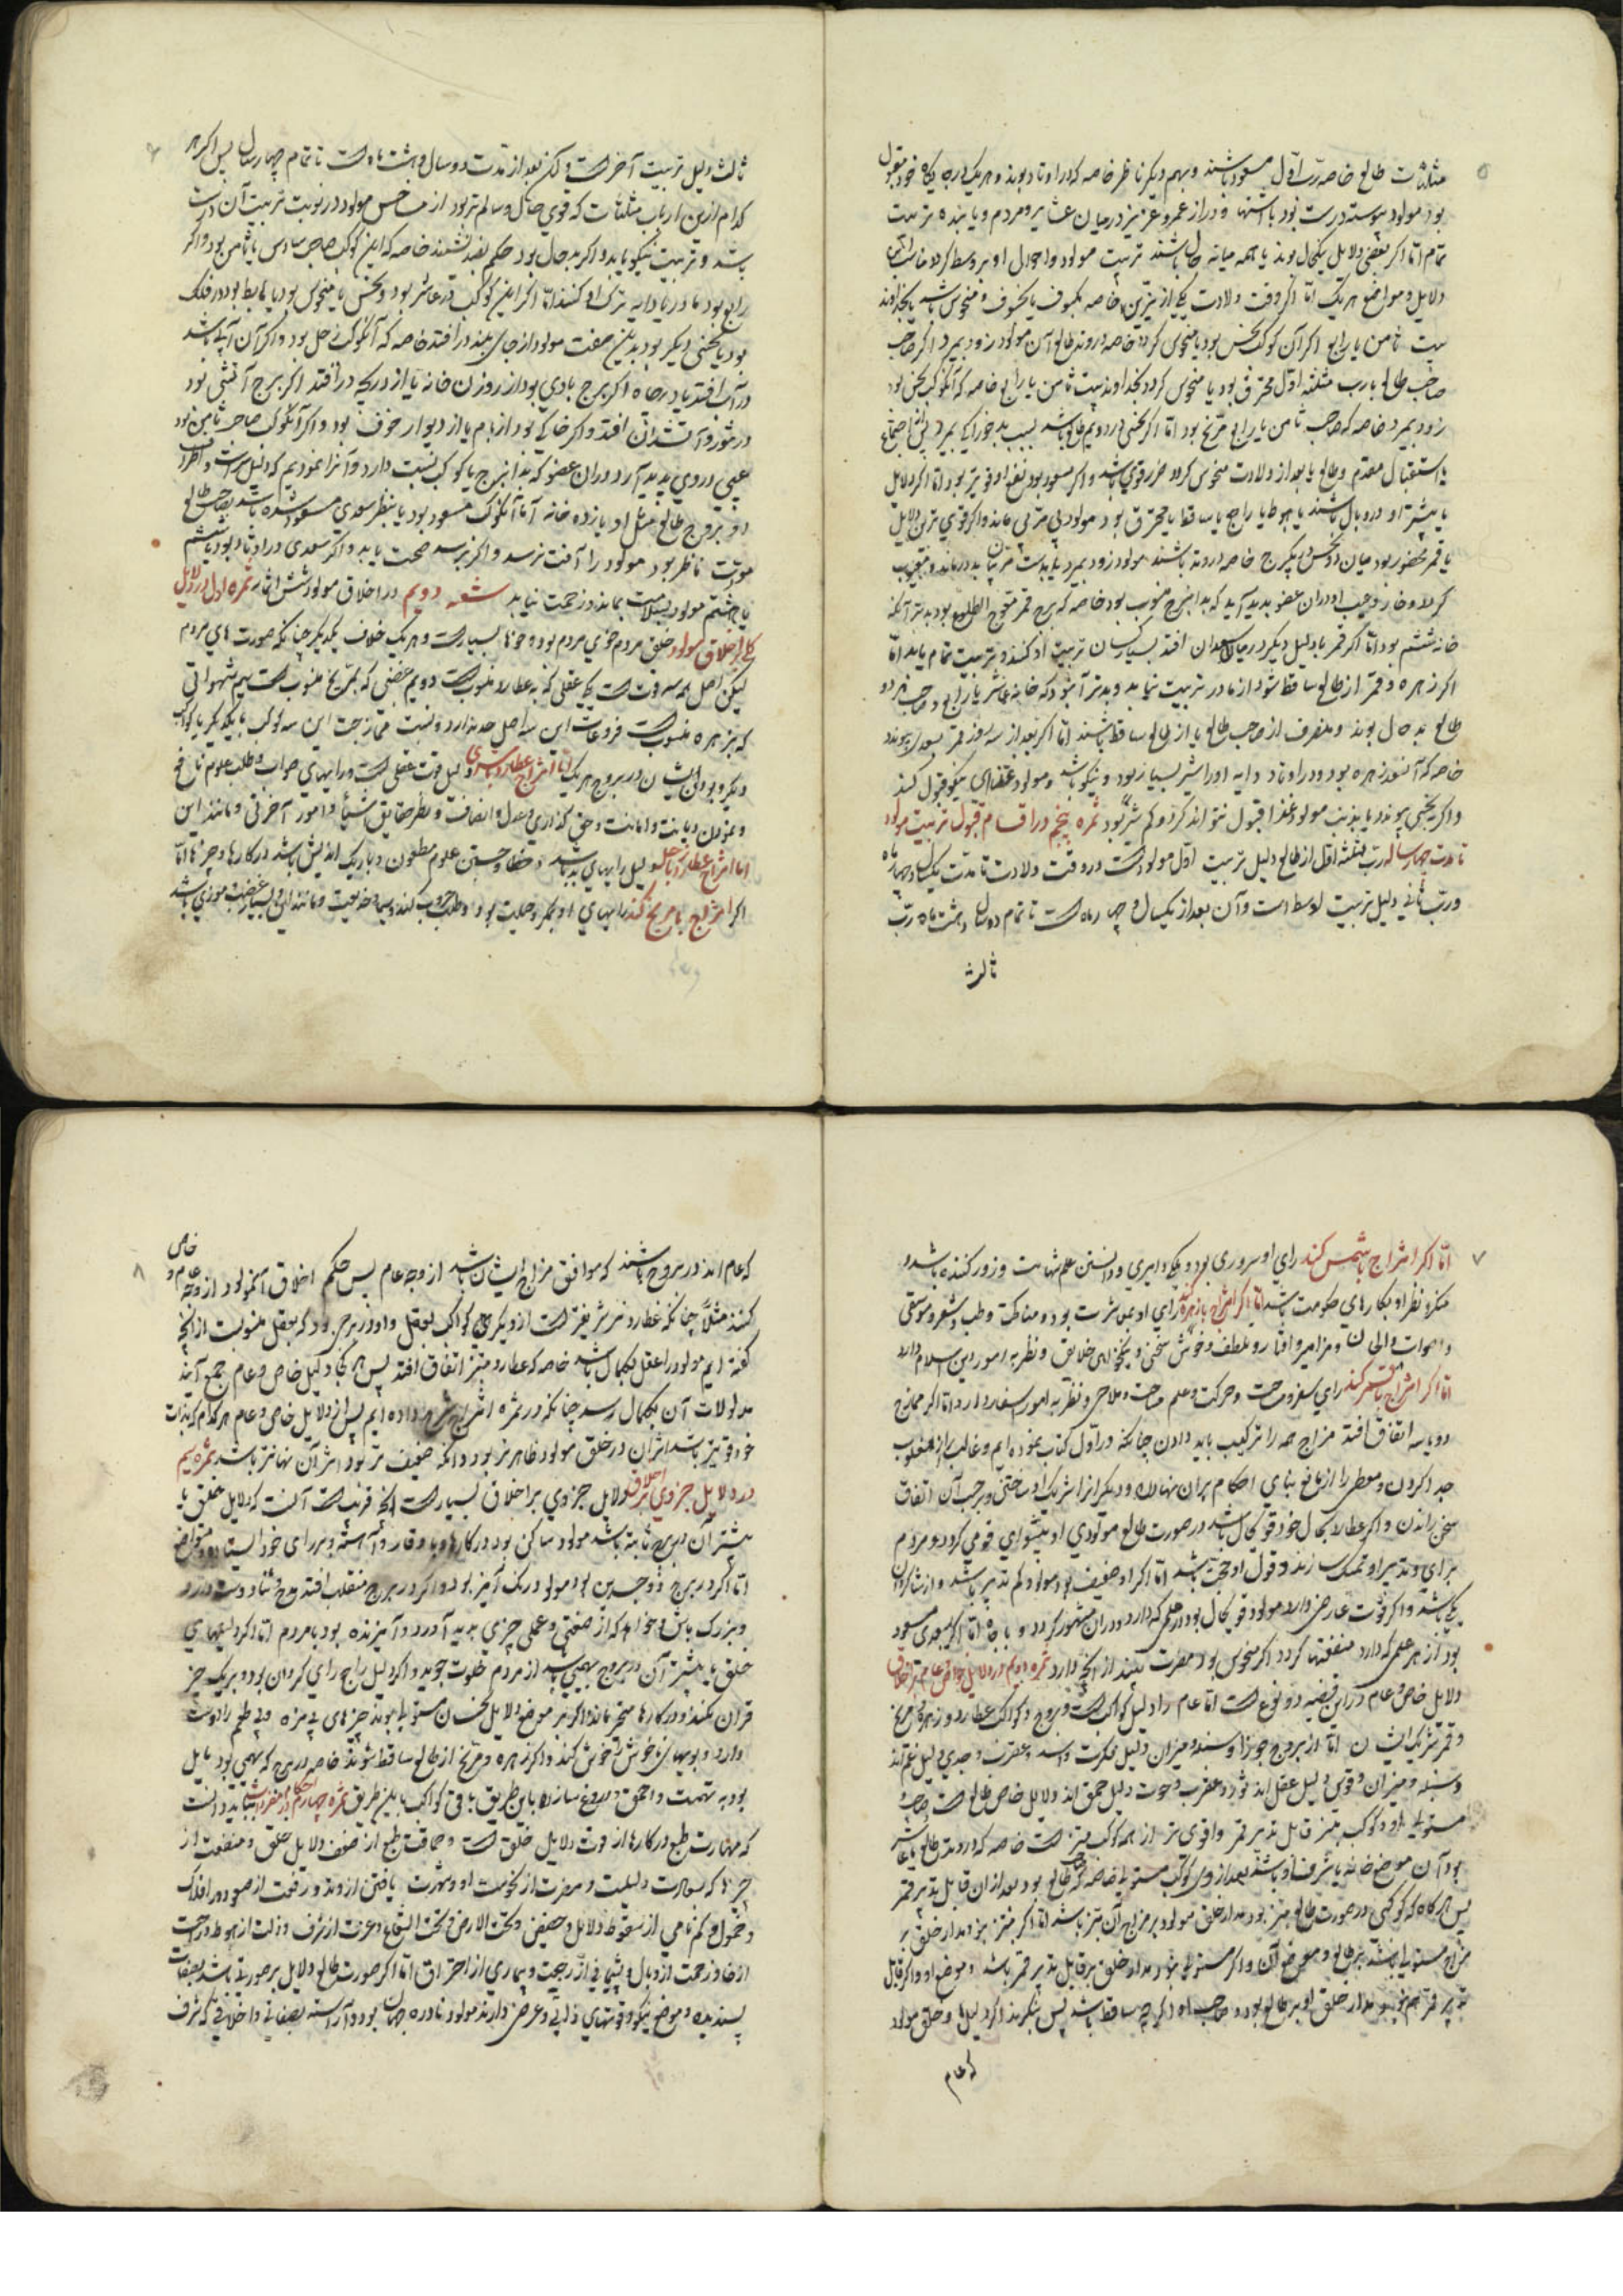 ۵
مثلثات طالع خاصه رب اول مسعود باشند و بهم دیگر ناظر خاصه که در اوتاد بوند و هر یک در جایگاه خود مقبول
بود مولود پیوسته درست بود با اشتها و دراز عمر و عزیز در میان عشایر و مردم و یابنده تربیت
تمام اما اگر بعضی دلایل نیکحال بوند یا همه میانه حال باشند تربیت مولود و احوال او بر وسط گردد
دلایل و مواضع هر یک اما اگر وقت ولادت یکی از نیرین خاصه بکسوف یا خسوف و منحوس باشد یا بخداوند
بیت ثامن یا رابع اگر آن کوکب نحس بود یا منحوس گردد خاصه در وتد طالع آن مولود زود بمیرد اگر صاحب
صاحب طالع یا رب مثلثه اول محترق بود یا منحوس گردد بخداوند بیت ثامن یا رابع خاصه که آن کوکب نحس بود
زود بمیرد خاصه که صاحب ثامن یا رابع مریخ بود اما اگر نحسی در دویم طالع باشد بسبب بد خوراکی بمیرد
یا استقبال مقدم و طالع یا بعد از ولادت منحوس گردد ضرر قوی باشد و اگر مسعود بود نفع او قویتر بود اما اگر دلایل
یا بیشتر او در وبال باشند یا هبوط یا راجع یا ساقط یا محترق بود مولود بی مربی ماند و اگر قوی ترین دلایل
یا قمر محصور بود میان دو نحس در یکبرج خاصه در وتد باشند مولود زود بمیرد
گردد و خار و عیب او در آن عضو پدید آید که بدان برج منسوب بود خاصه که برج قمر معوج الطلوع بود بدتر آنکه
خانه ششم بود اما اگر قمر یا دلیل دیگر در میان سعدان افتد بسیار کسان تربیت او کنند و تربیت تمام یابد اما
اگر زهره و قمر از طالع ساقط شود از مادر تربیت نیابد و بدتر آن بود که خانه عاشر یا رابع و صاحب هر دو
طالع بد حال بوند و منصرف از صاحب طالع یا از طالع ساقط باشند اما اگر بعد از سه روز قمر بسعدی پیوندد
خاصه که آن سعد زهره بود و در اوتاد دایه او را شیر بسیار بود و نیکو باشد و مولود غذای نیکو قبول کند
و اگر بنحسی پیوندد یا بذنب مولود غذا قبول نتواند کرد و کم شیر بود ثمره پنجم در اقسام قبول تربیت مولود
تا مدت چهار سال رب مثلثه اول از طالع دلیل تربیت اول مولود است و در وقت ولادت تا مدت یکسال و چهار ماه
و رب ثانی دلیل تربیت اوسط است و آن بعد از یکسال و چهار ماه است تا تمام دو سال و هشت ماه رب
ثالث
۶
ثالث دلیل تربیت آخر است ولکن بعد از مدت دو سال و هشت ماه است تا تمام چهار سال پس اگر هر
کدام ازین ارباب مثلثات که قوی حال و سالم تر بود از مناحس مولود در نوبت تربیت آن درست
باشد و تربیت نیکو یابد و اگر بد حال بود حکم بضد باشد خاصه که این کوکب صاحب سادس یا ثامن بود و اگر
رابع بود مادر یا دایه ترک او کنند اما اگر این کوکب در عاشر بود و نحس یا منحوس بود یا هابط بود در فلک
بود یا نحسی دیگر بود بدین صفت مولود از جای بلند در افتد خاصه که آن کوکب زحل بود و اگر آن آبی باشد
در آب افتد یا در چاه اگر برج بادی بود از روزن خانه یا از دریچه در افتد اگر برج آتشی بود
در تنور و آتشدان افتد و اگر خاکی بود از بام یا از دیوار خوف بود و اگر آن کوکب صاحب ثامن بود
عیبی در وی پدید آرد در آن عضو که بدان برج یا کوکب نسبت دارد و آنرا نمودیم که
و بروج طالع مثل او یازده خانه اما آن کوکب مسعود بود یا بنظر سعدی مسعود شده باشد بصاحب طالع
مودت ناظر بود مولود را آفت نرسد و اگر برسد صحت یابد و اگر سعدی در اوتاد بود یا ششم
یا هشتم مولود بسلامت بماند و زحمت نیابد شعبه دویم در اخلاق مولود شش ثمره ثمره اول در دلایل
کلی بر اخلاق مولود خلق مردم خوی مردم بود و خوها بسیار است و هر یک خلاف یکدیگر چنانکه صورت های مردم
لیکن اصل همه سه قوت است یکی عقلی که به عطارد منسوب است دویم غضبی که بمریخ منسوب است سیم شهوانی
که بزهره منسوب است فروعات این سه اصل حد ندارد و نسبت ممازجت این سه کوکب با یکدیگر یا کواکب
دیگر و بودن ایشان در بروج هر یک اما امتزاج عطارد با مشتری دلیل قوت عقلی است و رایهای صواب و طلب علوم نافع
و نمودن دیانت و امانت و حق گذاری و عدل و انصاف و نظر حقایق اشیا و امور آخرتی و مانند این
اما امتزاج عطارد با زحل دلیل رایهای بد باشد و خطا و جستن علوم مطعون و باریک اندیش باشد در کارها و چیزها اما
اگر امتزاج با مریخ کند رایهای او مکر و حیلت بود و طلب حروب کند و سیما خدیعت و مانند این و بسیار غضب و موذی باشد
۷
اما اگر امتزاج با شمس کند رای او سروری بود و نیکو رایی و دانستن علم شهامت و زور کننده باشد و
متکبر نظر او بکارهای حکومت باشد اما اگر امتزاج با زهره کند رای او بمباشرت بود و مناکحت و طب و شعر و موسیقی
و اصوات و الحان و مزامیر و اوتار و ملطف و خوش سخنی و نیکخواهی خلایق و نظر به امور دین اسلام دارد
اما اگر امتزاج با قمر کند رای سفر و سیاحت و حرکت و علم مساحت و ملاحی و نظر به امور اسفار دارد اما اگر ممازج
دو یا سه اتفاق افتد مزاج همه را ترکیب باید دادن چنانکه در اول کتاب نموده ایم و غالب را از مغلوب
جدا کردن و معطی را از مانع بنای احکام بر آن نهادن و دیگر آنرا شریک او ساختن و بر حسب آن اتفاق
سخن راندن و اگر عطارد بکمال خود قوی حال باشد در صورت طالع مولودی او پیشوای قومی گردد و مردم
برای و تدبیر او تمسک سازند و قول او حجت باشد اما اگر او ضعیف بود مولود کم تدبیر باشد و از شاگردان
یکی باشد و اگر قوت عارضی دارد مولود قوی حال بود در علمی که دارد و در آن مشهور گردد و با جاه اما اگر بسعدی مسعود
بود از هر علمی که دارد منفعتها گردد اگر منحوس بود مضرت بیند از آنچه دارد ثمره دویم در دلایل خاص و عام بر اخلاق
دلایل خاص و عام در این قضیه دو نوع است اما عام را دلیل کواکب است و بروج و کواکب عطارد و زهره و مریخ
و قمر شریک ایشان اما از بروج جوزا و سنبله و میزان دلیل فکرت و اسد و عقرب و جدی دلیل غم اند
و سنبله و میزان و قوس دلیل عقل اند ثور و عقرب و حوت دلیل حمق اند دلایل خاص طالع است و صاحب
مستولی او و کوکب مبتز قابل تدبیر قمر و اقوی تر از همه کوکب مبتز است خاصه که در وتد طالع یا عاشر
بود آن موضع خانه یا شرف او باشد بعد از وی کوکب مستولی خاصه که صاحب طالع بود بعد از آن قابل تدبیر قمر
پس هر گاه که کوکبی در صورت طالع مبتز بود مدار خلق مولود بر مزاج آن مبتز باشد اما اگر مبتز نبود مدار خلق بر
مزاج مستولی باشد بر طالع و موضع آن و اگر مستولی نبود مدار خلق بر قابل تدبیر قمر باشد و موضع او و اگر قابل
تدبیر قمر هم نبود مدار خلق او بر طالع بود و صاحب او اگر چه ساقط باشد پس بنگرند اگر دلیل‌ها و خلق مولود
که عام
۸
که عام اند در بروجی باشند که موافق مزاج ایشان باشد از وجه عام پس حکم اخلاق آن مولود از وجه عام و خاص
کنند مثلا چنانکه عطارد شریفتر است از دیگری کواکب بعقل و او در برجی بود که بعقل منسوبست از آنچه
گفته ایم مولود را عقل بکمال باشد خاصه که عطارد مبتز اتفاق افتد پس هر کجا دلیل خاص و عام جمع آیند
مدلولات آن بکمال رسد چنانکه در ثمره امتزاج شرح داده ایم پس از دلایل خاص و عام هر کدام که بذات
خود قویتر باشد اثر آن در خلق مولود ظاهرتر بود و آنکه ضعیف تر بود اثر آن نهان تر باشد ثمره سیم
در دلایل جزوی بر اخلاق دلایل جزوی بر اخلاق بسیار است آنچه قریب است آنست که دلایل خلق یا
بیشتر آن در برج ثابته باشد مولود ساکن بود در کارها و با وقار و آهسته و بر رای خود ایستاده و متواضع
اما اگر در برج ذوجسدین بود مولود رنگ آمیز بود و اگر در برج منقلب افتد مدح و ثنا دوست دارد
و بزرگ باش و خواهد که از صنعتی و عملی چیزی پدید آورد و آمیزنده بود با مردم اما اگر دلیلهای
خلق یا بیشتر آن در بروج بهیمی باشد از مردم خلوت جوید و اگر دلیل راجع رای گردان بود و بر یک چیز
قرار نکند و در کارها متحیر ماند و اگر بر موضع دلایل نحسان مستولی بوند چیزهای بی مزه و بی طعم را دوست
دارد و بویهای ناخوش را خوش کند و اگر زهره و مریخ از طالع ساقط شوند خاصه در برج که بهیمی بود مایل
بود به تهمت و احمق و دروغ سازد و باین طریق باقی کواکب بدین طریق ثمره چهارم در احکام مفردات بباید دانست
که مهارت طبع در کارها از قوت دلایل خلق است و حماقت طبع از ضعف دلایل خلق و منفعت از
چیزها که سعادت دلیلست و مضرت از نحوست او و شهرت یافتن از وتد و رفعت از صعود در افلاک
و خمول و گم نامی از سقوط دلایل و حضیض و تحت الارض و تحت الشعاع و عزت از شرف و ذلت از هبوط و راحت
از خانه و زحمت از وبال و پشیمانی از رجعت و بیماری از احتراق اما اگر صورت طالع و دلایل بر صورتی باشد بصفات
پسندیده و موضع نیکو و قوتهای ذاتی و عرضی دارند مولود نادره جهان بود و آراسته بصفاتی و اخلاقی که شرف